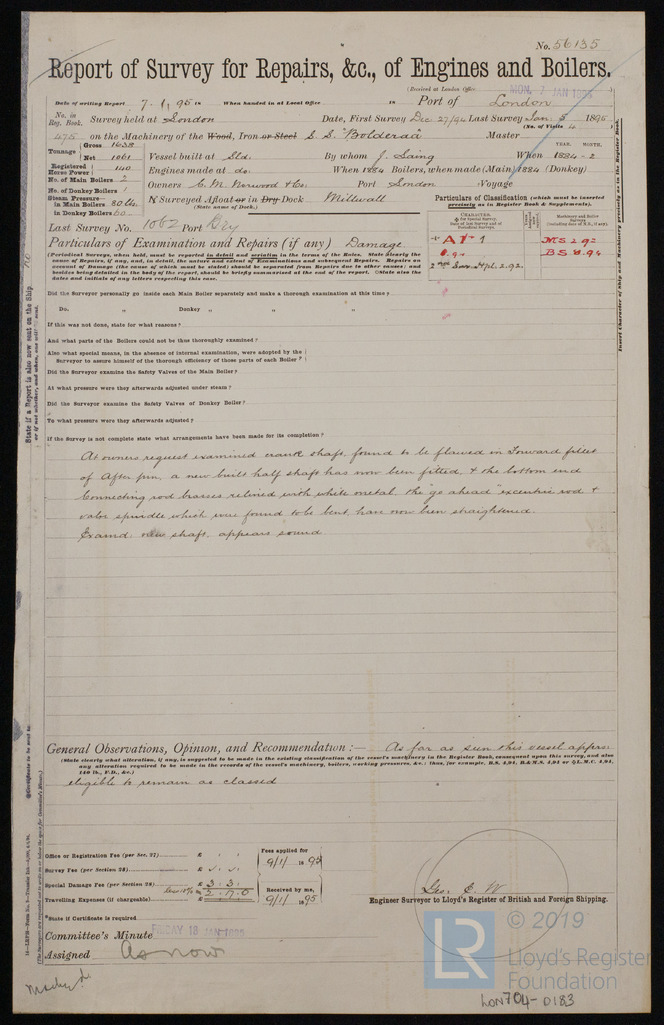 No. 56135
Report of Survey for Repairs, &c., of Engines and Boilers.
(Received at London Office MON. 7 JAN 1895)
Date of writing Report 7.1.95 When handed in at Local Office Port of London
No. in Reg. Book. Survey held at London Date, First Survey Dec: 27/94 Last Survey Jan: 5 1895
(No. of Visits 4)
475 on the Machinery of the Wood, Iron or Steel S.S. "Bolderaa" Master
Tonnage Gross 1638 Net 1061
Vessel built at Sld. By whom J. Laing When 1884-2
YEAR. MONTH.
Registered Horse Power 140
Engines made at do. When 1884 Boilers, when made (Main) 1884 (Donkey)
No. of Main Boilers 2
Owners C. M. Norwood & Co. Port London Voyage
No. of Donkey Boilers 1
Steam Pressure in Main Boilers 80 lbs.
in Donkey Boilers 60
If Surveyed Afloat or in Dry Dock Millwall
(State name of Dock.)
Particulars of Classification (which must be inserted precisely as in Register Book & Supplements).
Last Survey No. 1062 Port Dry
CHARACTER.
for Special Survey.
Date of last Survey and of Periodical Surveys.
Machinery and Boiler Surveys
(including date of N.B., if any).
+ A1 1
MS 2.92
BS 8.94
Particulars of Examination and Repairs (if any) Damage
(Periodical Surveys, when held, must be reported in detail and seriatim in the terms of the Rules. State clearly the
cause of Repairs, if any, and, in detail, the nature and extent of Examinations and subsequent Repairs. Repairs on
account of Damage (the cause of which must be stated) should be separated from Repairs due to other causes; and
besides being detailed in the body of the report, should be briefly summarised at the end of the report. (State also the
dates and initials of any letters respecting this case.
Did the Surveyor personally go inside each Main Boiler separately and make a thorough examination at this time?
Do. " Donkey " " "
If this was not done, state for what reasons?
And what parts of the Boilers could not be thus thoroughly examined?
Also what special means, in the absence of internal examination, were adopted by the
Surveyor to assure himself of the thorough efficiency of those parts of each Boiler?
Did the Surveyor examine the Safety Valves of the Main Boiler?
At what pressure were they afterwards adjusted under steam?
Did the Surveyor examine the Safety Valves of Donkey Boiler?
To what pressure were they afterwards adjusted?
If the Survey is not complete state what arrangements have been made for its completion?
At owners request examined crank shaft, found to be flawed in Forward fillet
of After pin, a new built half shaft has now been fitted, & the bottom end
Connecting rod brasses relined with white metal, the "go ahead" excentric rod &
valve spindle which were found to be bent, have now been straightened.
Examd. new shaft, appears sound.
General Observations, Opinion, and Recommendation:— As far as seen this vessel appears
(State clearly what alteration, if any, is suggested to be made in the existing classification of the vessel's machinery in the Register Book, consequent upon this survey, and also
any alteration required to be made in the records of the vessel's machinery, boilers, working pressures, &c.: thus, for example, B.S. 4,94, B.&M.S. 4,94 or L.M.C. 4,94,
140 lb., F.D., &c.)
eligible to remain as classed
Office or Registration Fee (per Sec. 27) £
Survey Fee (per Section 28) £
Special Damage Fee (per Section 28) £ 3.3.
Less 10% 2.17.0
Travelling Expenses (if chargeable) £
Fees applied for
9/1/1895
Received by me,
9/1/1895
Geo. E. W
Engineer Surveyor to Lloyd's Register of British and Foreign Shipping.
*State if Certificate is required
Committee's Minute FRIDAY 18 JAN 1895
Assigned As now
State if a Report is also now sent on the Ship.
or if not whether, and when, one will be sent.
Insert Character of Ship and Machinery precisely as in the Register Book.
LR
© 2019
Lloyd's Register
Foundation
LON704-0183